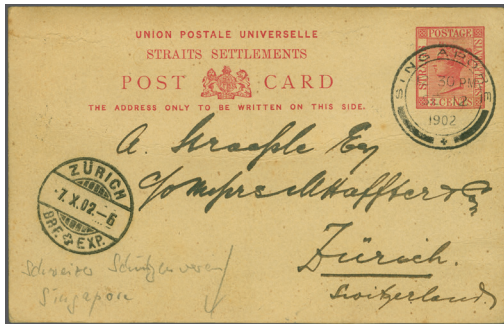 UNION POSTALE UNIVERSELLE
STRAITS SETTLEMENTS
POST CARD
THE ADDRESS ONLY TO BE WRITTEN ON THIS SIDE.
POSTAGE
SINGAPORE
30 PM
1902
A. Straehle Esq
c/o
Zürich.
Switzerland
ZÜRICH
7.X.02.-5
BRF. & EXP.
Schweizer Schützenverein
Singapore